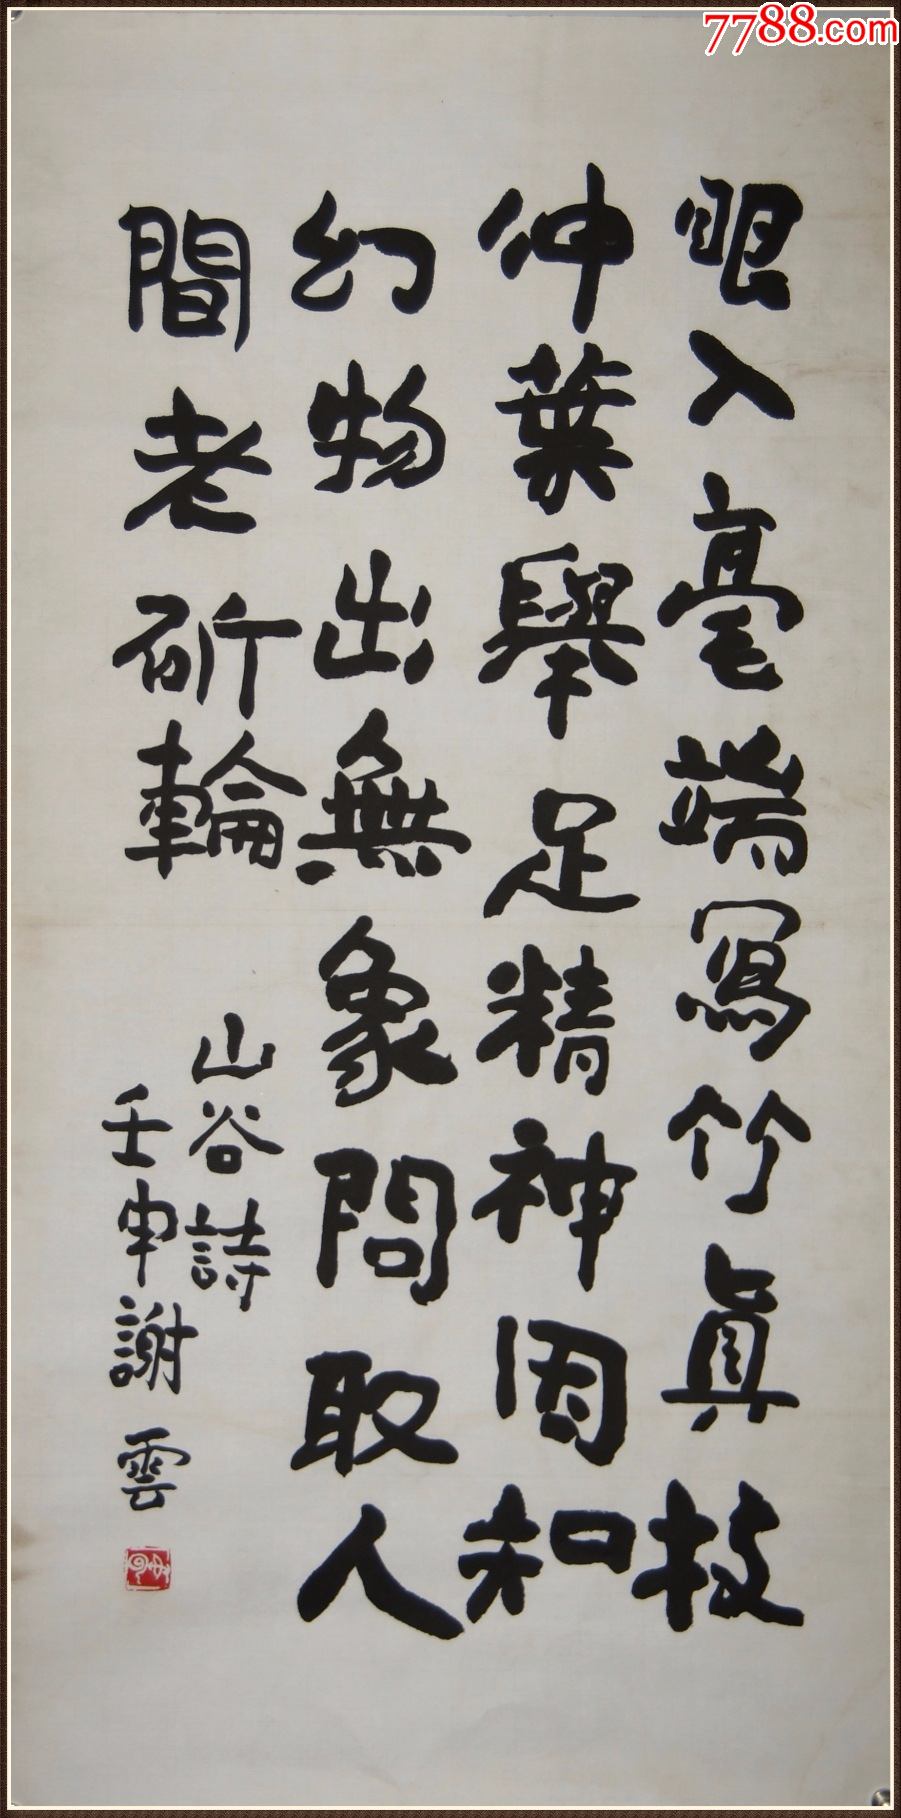 7788.com
眼入毫端寫竹真枝
伸葉舉足精神因知
幻物出無象問取人
間老斫輪
山谷詩
壬申謝雲